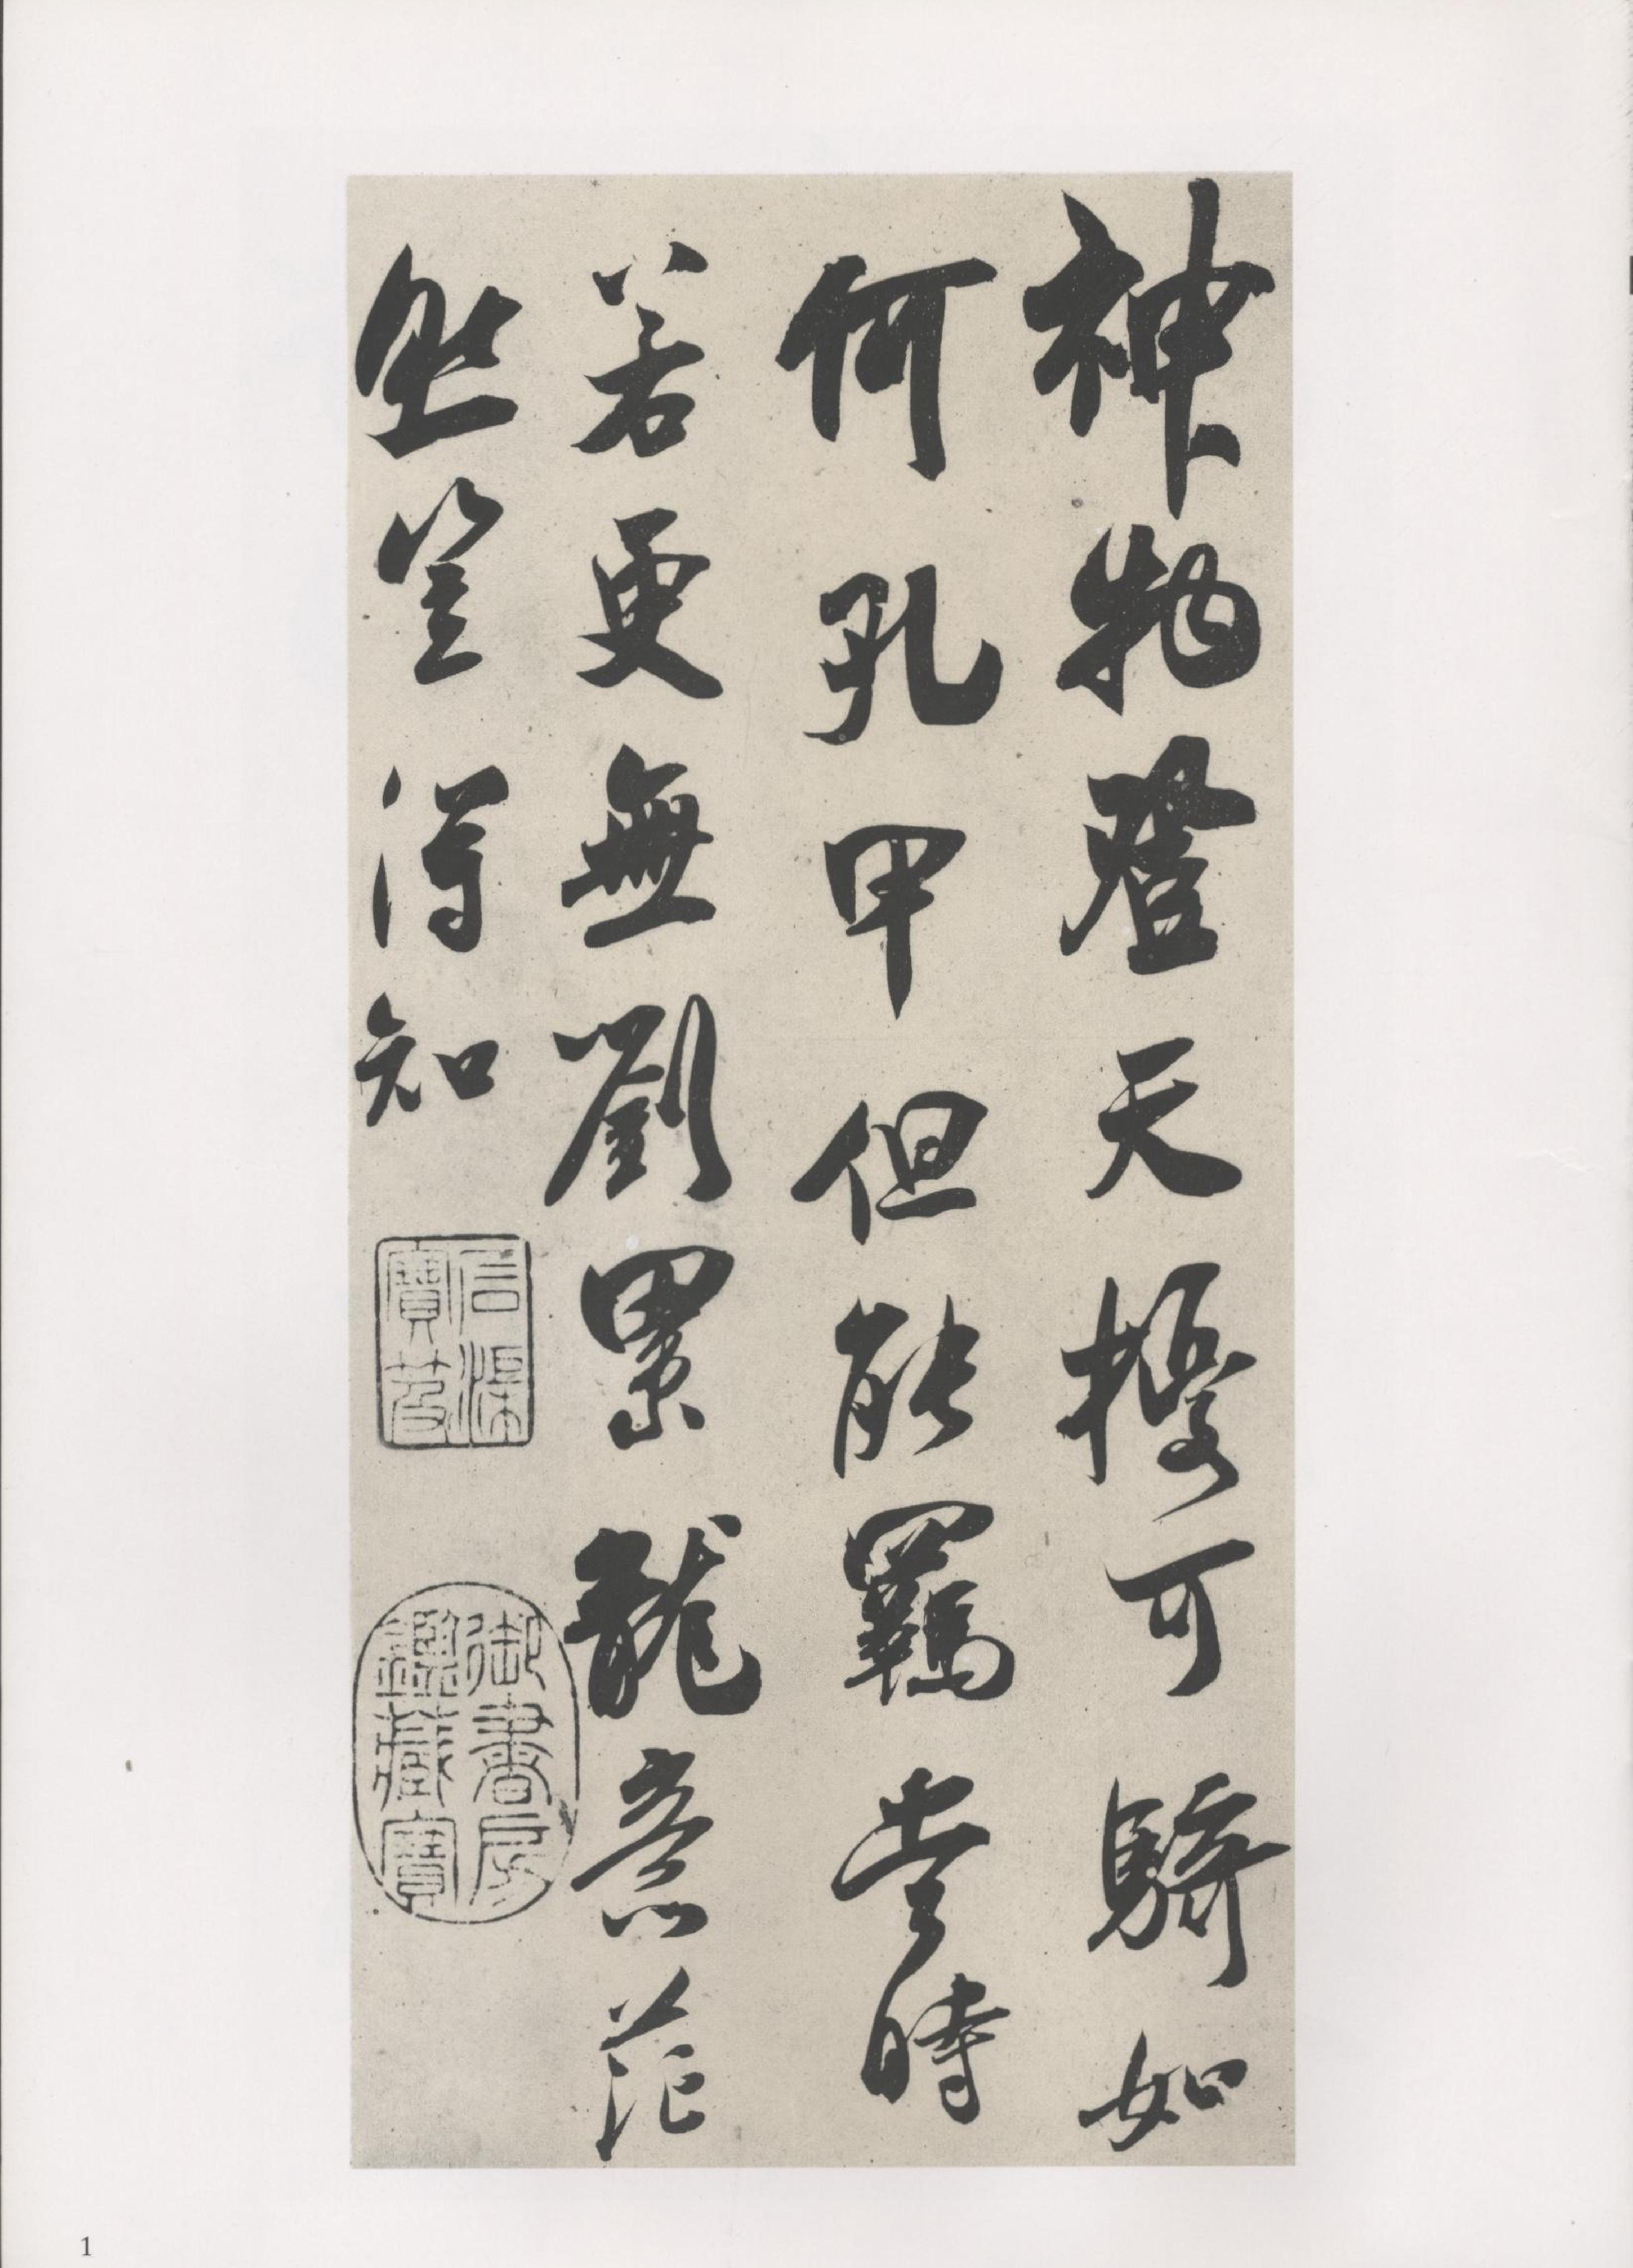 神物登天擾可騎如
何孔甲但能羈當時
若更無劉累龍意茫
然豈得知
石渠
寶笈
御書房
鑑藏寶
1